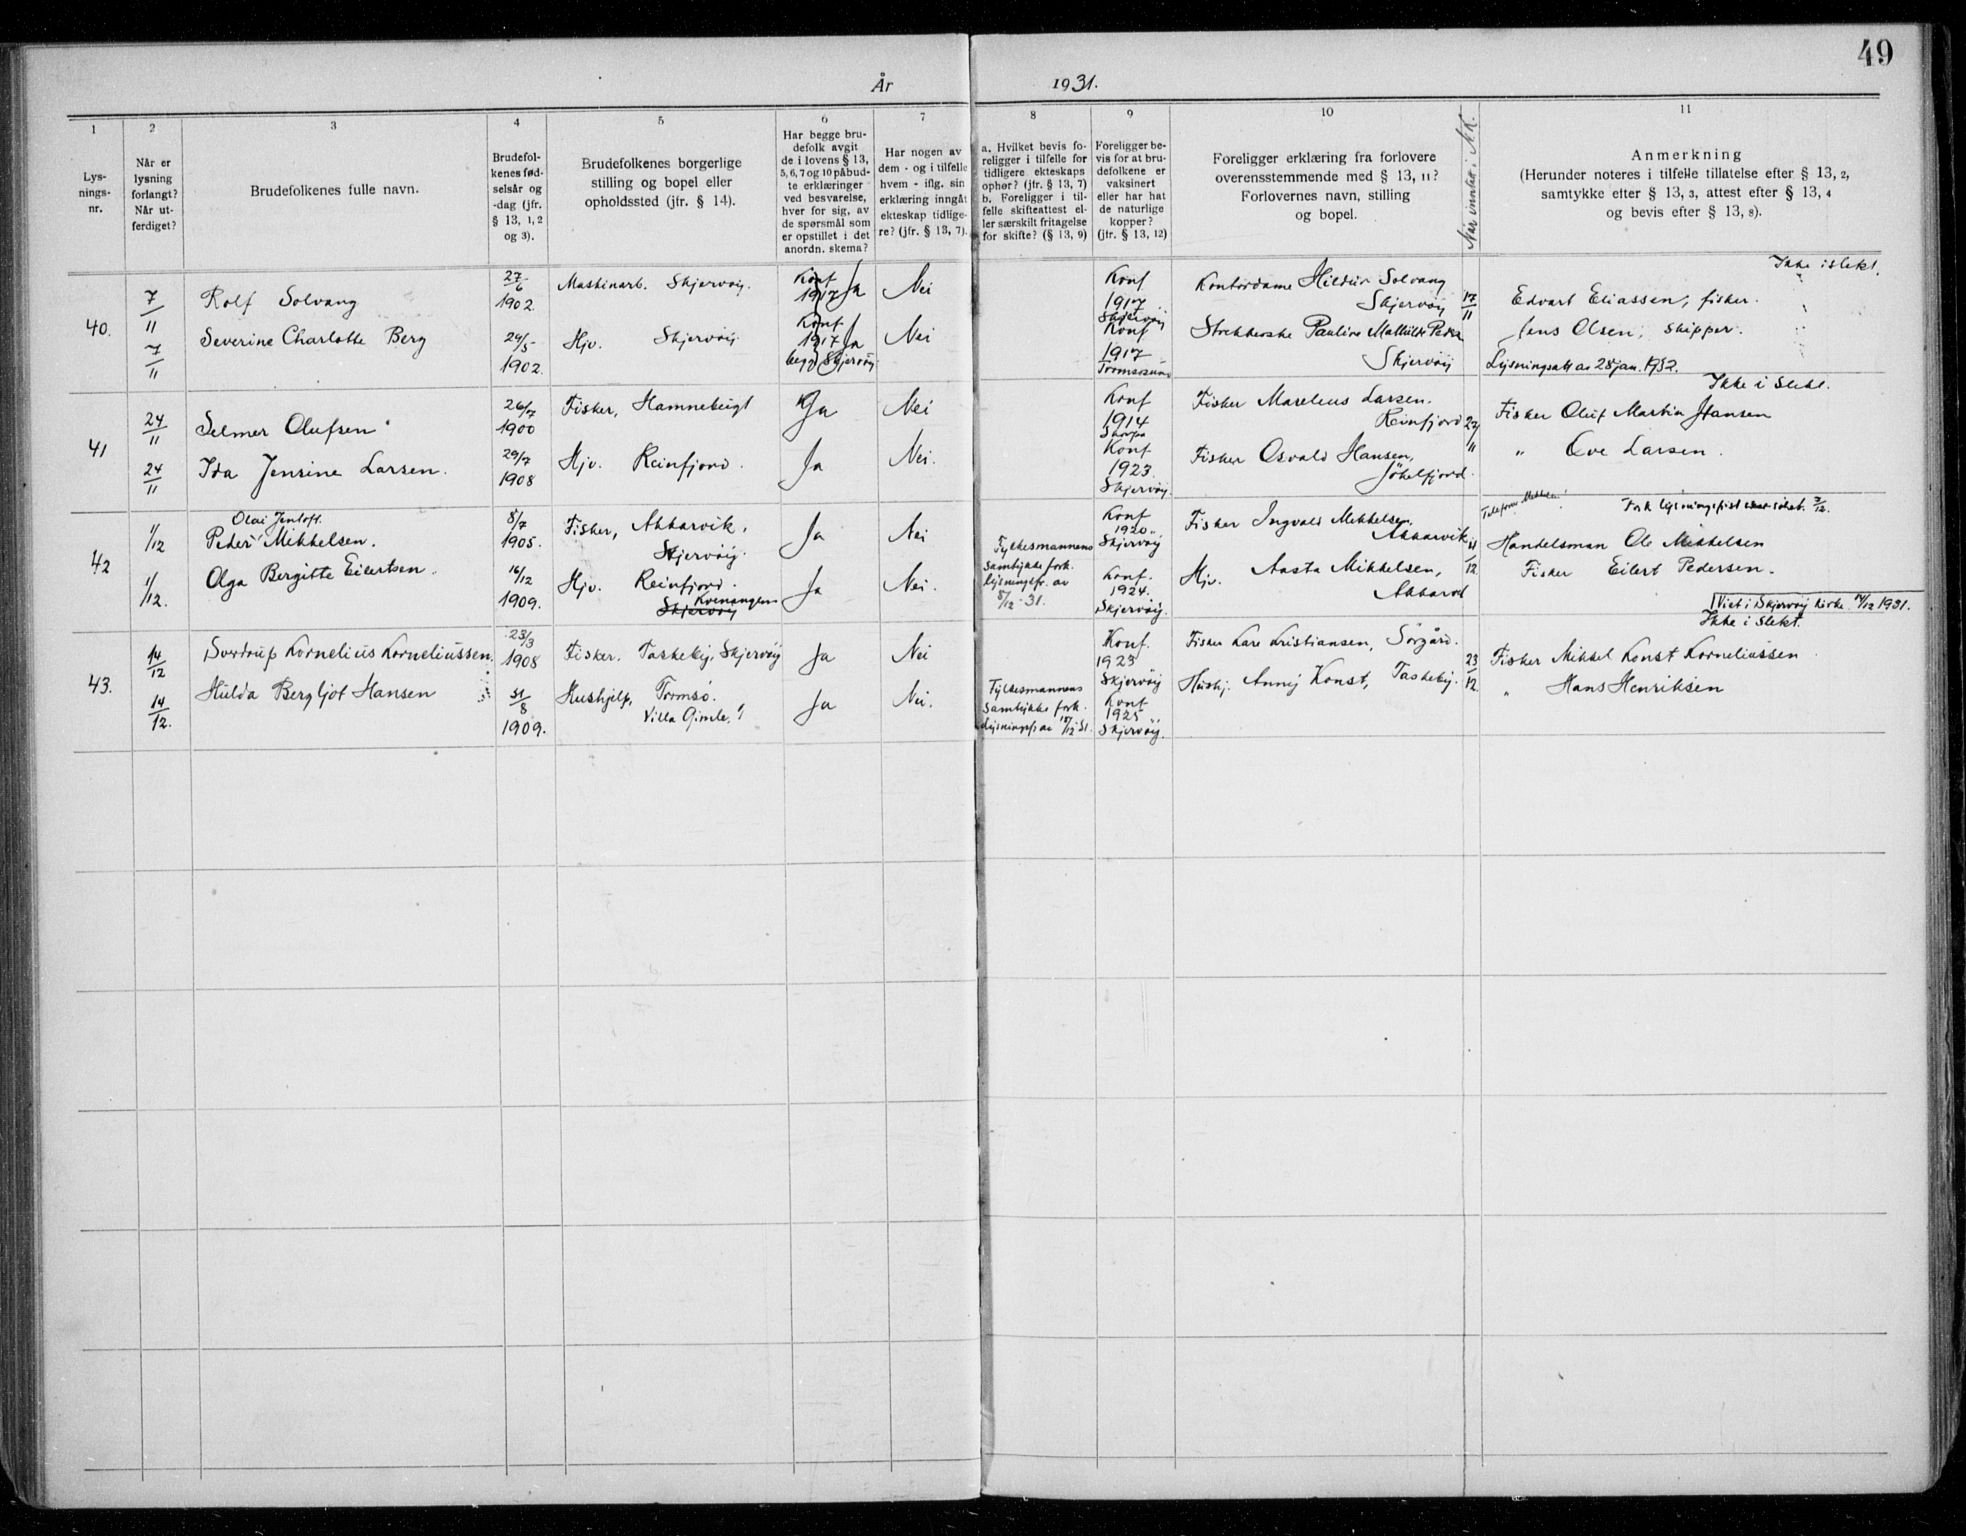 49
År 1931.
1 2 3 4 5 6 7 8 9 10 11
Lys-
nings-
nr.
Når er
lysning
forlangt?
Når ut-
ferdiget?
Brudefolkenes fulle navn.
Brudefol-
kenes fød-
selsår og
-dag (jfr.
§ 13, 1, 2
og 3).
Brudefolkenes borgerlige
stilling og bopel eller
opholdssted (jfr. § 14).
Har begge bru-
defolk avgit
de i lovens § 13,
5, 6, 7 og 10 påbud-
te erklæringer
ved besvarelse,
hver for sig, av
de spørsmål som
er opstillet i det
anordn. skema?
Har nogen av
dem - og i tilfelle
hvem - iflg. sin
erklæring inngåt
ekteskap tidlige-
re? (jfr. § 13, 7).
a. Hvilket bevis fo-
religger i tilfelle for
tidligere ekteskaps
ophør? (jfr. § 13, 7)
b. Foreligger i til-
felle skifteattest el-
ler særskilt fritagelse
for skifte? (§ 13, 9)
Foreligger be-
vis for at bru-
defolkene er
vaksinert
eller har hat
de naturlige
kopper?
(jfr. § 13, 12)
Foreligger erklæring fra forlovere
overensstemmende med § 13, 11?
Forlovernes navn, stilling
og bopel.
Når innsatt i N.K.
Anmerkning
(Herunder noteres i tilfelle tillatelse efter § 13, 2,
samtykke efter § 13, 3, attest efter § 13, 4
og bevis efter § 13, 8).
40.
7/11
Rolf Solvang
27/6
1902.
Maskinarb. Skjervøy.
Konf
1917 Ja
Nei
Konf
1917
Skjervøy
Kontordame Hildur Solvang
Skjervøy
17/11
Ikke i slekt.
Edvart Eliassen, fisker.
7/11
Severine Charlotte Berg
24/5
1902.
Hjv. Skjervøy.
Konf
1917 Ja
begge Skjervøy
Nei
Konf
1917
Tromsøsund
Pauline Mathilde
Skjervøy
Jens Olsen, skipper.
Lysningsatt av 28 jan. 1932.
41
24/11
Selmer Olufsen
26/7
1900
Fisker, Hamnebugt
Ja
Nei
Konf
1914
Fisker Marelius Larsen.
Reinfjord
27/11
Ikke i slekt.
Fisker Oluf Martin Hansen
24/11
Ida Jensine Larsen.
29/7
1908
Hjv. Reinfjord.
Ja
Nei.
Konf
1923
Skjervøy.
Fisker Osvald Hansen,
Jökelfjord.
" Ove Larsen.
42
1/12
Olai Jentoft
Peder Mikkelsen.
8/7
1905.
Fisker, Akkarvik,
Skjervøy.
Ja
Nei
Konf
1920
Skjervøy
Fisker Ingvald Mikkelsen,
Akkarvik
11/12
Fork lysningsfrist
Handelsman Ole Mikkelsen
1/12.
Olga Bergitte Eilertsen.
16/12
1909.
Hjv. Reinfjord.
Kvenangen
Skjervøy
Ja
Nei.
Fylkesmannens
samtykke fork.
lysningsfr. av
8/12-31.
Konf.
1924.
Skjervøy.
Hjv. Aasta Mikkelsen,
Akkarvik
Fisker Eilert Pedersen.
Viet i Skjervøy kirke 14/12 1931.
43.
14/12
Sverdrup Kornelius Korneliussen.
23/3
1908
Fisker. Taskeby, Skjervøy
Ja
Nei
Konf.
1923
Skjervøy
Fisker Kare Kristiansen, Sørgård.
23/12
Ikke i slekt.
Fisker Mikkel Konst Korneliussen
14/12.
Hulda Bergljot Hansen
31/8
1909.
Hushjelp, Tromsø.
Villa Gimle.
Ja
Nei.
Fylkesmannens
samtykke fork.
Konf
1925
Skjervøy.
Hushj. Anny Konst, Taskeby.
" Hans Henriksen